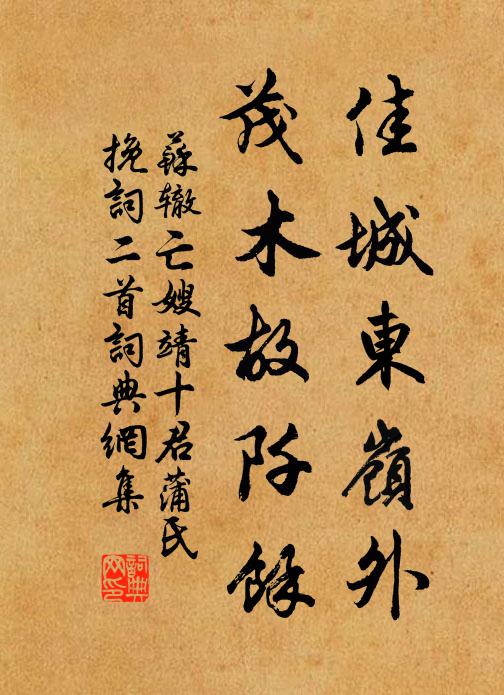 佳城東嶺外
茂木故阡餘
蘇辙亡嫂靖十君蒲氏
挽詞二首詞典網集
詞典
网印